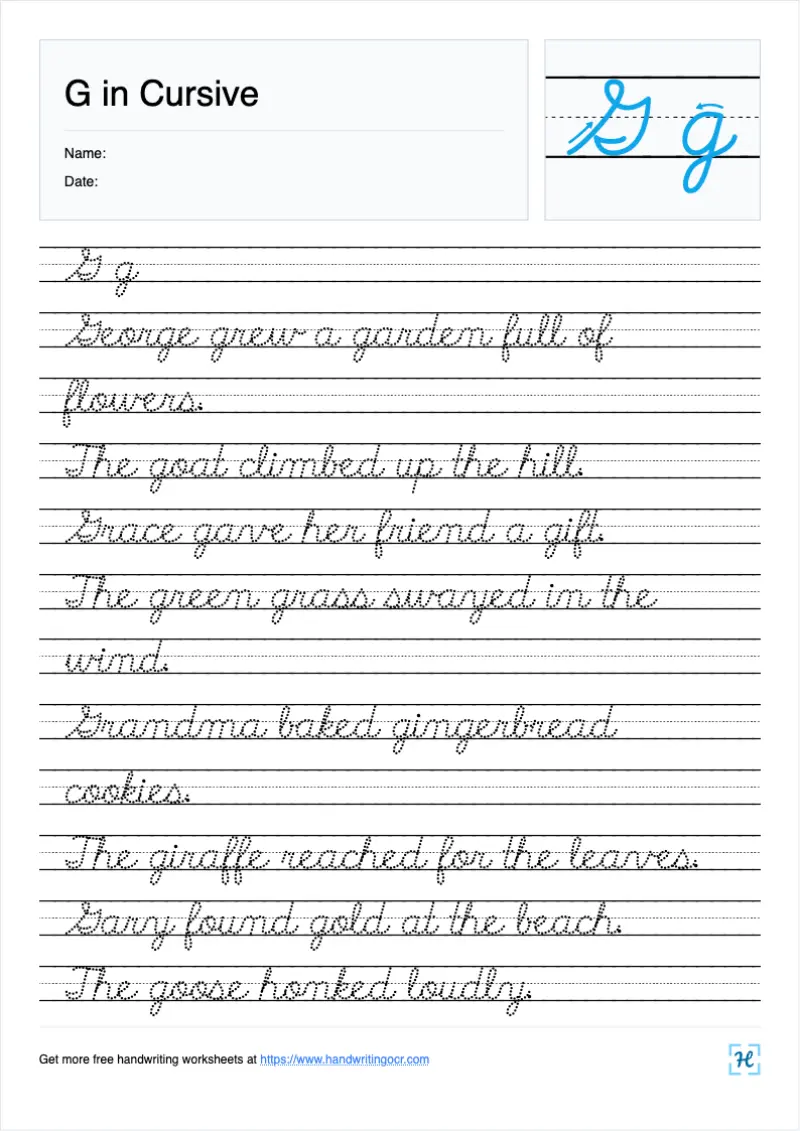 G in Cursive
G g
Name:
Date:
G g
George grew a garden full of
flowers.
The goat climbed up the hill.
Grace gave her friend a gift.
The green grass swayed in the
wind.
Grandma baked gingerbread
cookies.
The giraffe reached for the leaves.
Gary found gold at the beach.
The goose honked loudly.
Get more free handwriting worksheets at https://www.handwritingocr.com
H